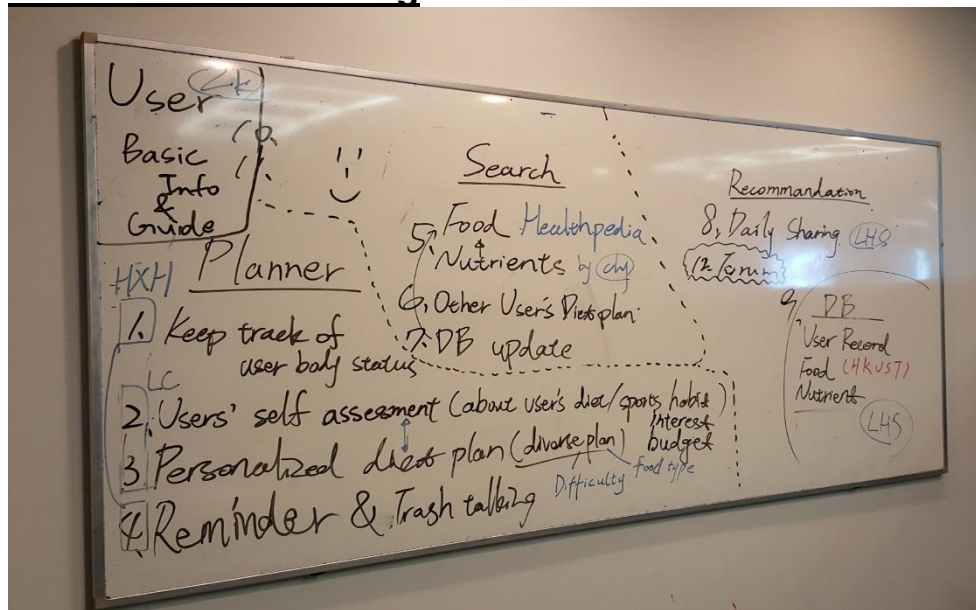 User
10.
11.
Basic
Info
&
Guide
HXH
Planner
1. Keep track of
user body status
LC
2. Users' self assessment (about user's diet/sports habit)
interest
budget
3. Personalized diet plan (diverse plan)
Difficulty
Food type
4. Reminder & Trash talking
Search
5. Food Healthpedia
Nutrients by
6, Other User's Diet plan
7. DB update
Recommandation
8, Daily Sharing LHS
12. Forum
9, DB
User Record
Food (HKUST)
Nutrient
LHS